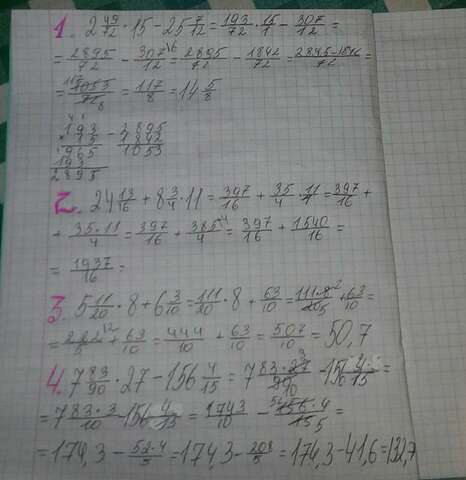 1. 2 49/72 · 15 − 25 7/12 = 193/72 · 15/1 − 307/12 =
= 2895/72 − 307/12 \6 = 2895/72 − 1842/72 = 2895-1842/72 =
= 117 1053/72 8 = 117/8 = 14 5/8
193 − 2895
× 15 1842
965 1053
193
2895
2. 24 13/16 + 8 3/4 · 11 = 397/16 + 35/4 · 11/1 = 397/16 +
+ 35·11/4 = 397/16 + 385/4 \4 = 397/16 + 1540/16 =
= 1937/16 =
3. 5 11/20 · 8 + 6 3/10 = 111/20 · 8 + 63/10 = 111·8 2/20 5 + 63/10 =
= 222/5 \2 + 63/10 = 444/10 + 63/10 = 507/10 = 50,7
4. 7 83/90 · 27 − 156 4/15 = 7 83·27 3/90 10 − 156 4/15 =
= 7 83·3/10 − 156 4/15 = 1743/10 − 52 156·4/15 5 =
= 174,3 − 52·4/5 = 174,3 − 208/5 = 174,3 − 41,6 = 132,7